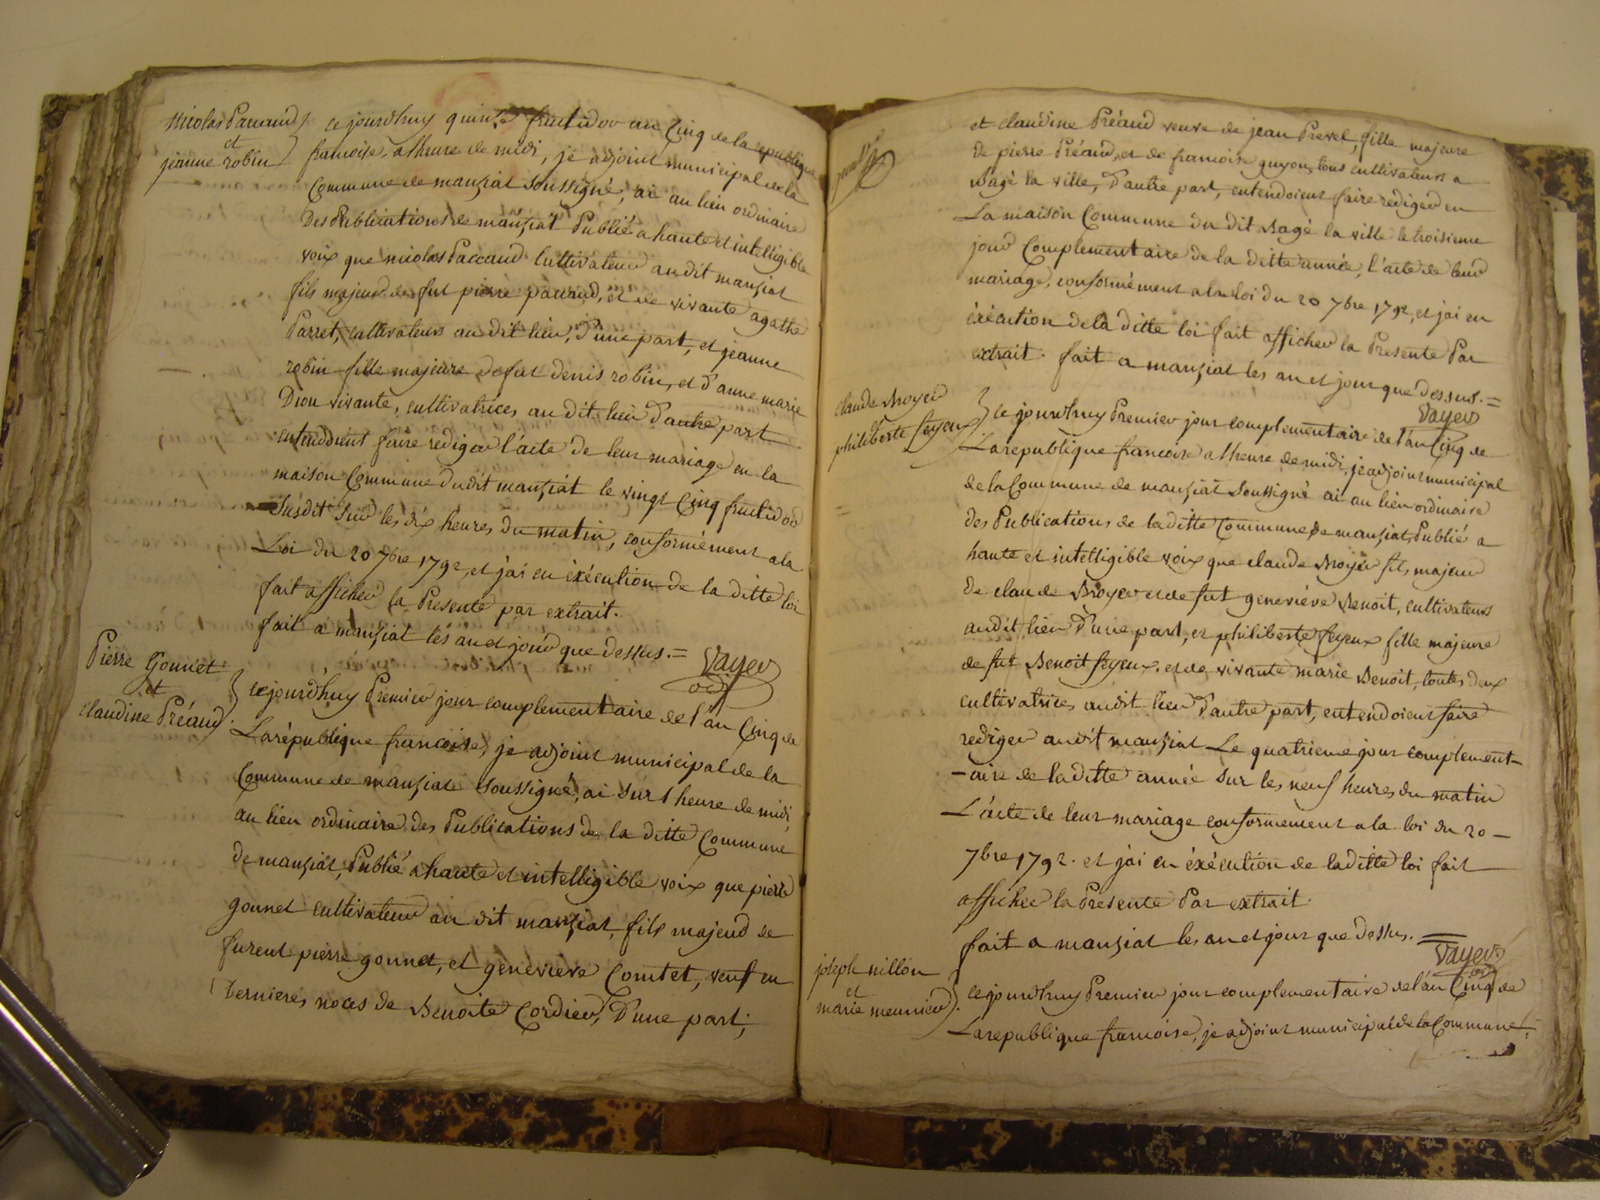 Nicolas Paccaud
et
jeanne robin
ce jourdhuy quinze fructidor an Cinq de la republique
francoise, a lheure de midi, je adjoint municipal de la
Commune de manziat soussigné, ai au lieu ordinaire
Des Publications de manziat Publié a haute et intelligible
voix que nicolas Paccaud Cultivateur audit manziat
fils majeur de fut pierre paccaud, et de vivante agathe
Parret, cultivateurs au dit lieu, D'une part, et jeanne
robin fille majeure de fut denis robin, et D'anne marie
Diou vivante, cultivatrices au dit lieu D'autre part
entendoient faire rediger l'acte de leur mariage en la
maison Commune dudit manziat le vingt Cinq fructidor
susdit sur les dix heures du matin, conformément a la
Loi du 20 7bre 1792, et j'ai en éxécution de la ditte loi
fait afficher la Presente par extrait.
fait a manziat les an et jour que dessus. =
Vayer
adj
Pierre Gonnet
et
claudine Préaud.
cejourdhuy Premier jour complementaire de l'an Cinq de
La république francoise, je adjoint municipal de la
Commune de manziat soussigné, ai sur l heure de midi
au lieu ordinaire des Publications de la ditte Commune
de manziat Publié a haute et intelligible voix que pierre
gonnet cultivateur au dit manziat, fils majeur de
furent pierre gonnet, et geneviève Comtet, veuf en
Dernieres noces de Benoite Cordier, D'une part;
et claudine Préaud veuve de jean Prevel, fille majeure
de pierre Préaud, et de francoise guyon, tous cultivateurs a
Bagé la ville, D'autre part, entendoient faire rediger en
La maison Commune du dit Bagé la ville le troisieme
jour Complementaire de la ditte année, l'acte de leur
mariage, conformément a la loi du 20 7bre 1792, et j'ai en
éxécution de la ditte loi fait afficher la Presente Par
extrait. fait a manziat les an et jour que dessus. =
Vayer
claude Broyer
et
philiberte feyeux
ce jourdhuy Premier jour complementaire de l'an Cinq de
La republique francoise a lheure de midi, je adjoint municipal
de la Commune de manziat soussigné ai au lieu ordinaire
des Publications de la ditte Commune de manziat, Publié a
haute et intelligible voix que claude Broyer fils majeur
de claude Broyer et de fut geneviéve Benoit, cultivateurs
audit lieu D'une part, et philiberte feyeux fille majeure
de fut Benoit feyeux, et de vivante marie Benoit, toutes deux
cultivatrices audit lieu D'autre part, entendoient faire
rediger audit manziat Le quatrieme jour complement-
-aire de laditte année sur les neuf heures du matin
L'acte de leur mariage conformement a la loi du 20 -
7bre 1792. et j'ai en éxécution de laditte loi fait
afficher la Presente Par extrait.
fait a manziat les an et jour que dessus. =
Vayer
adj
joseph nillon
et
marie meunier
ce jourdhuy Premier jour complementaire de l'an Cinq de
La republique francoise, je adjoint municipal de la Commune